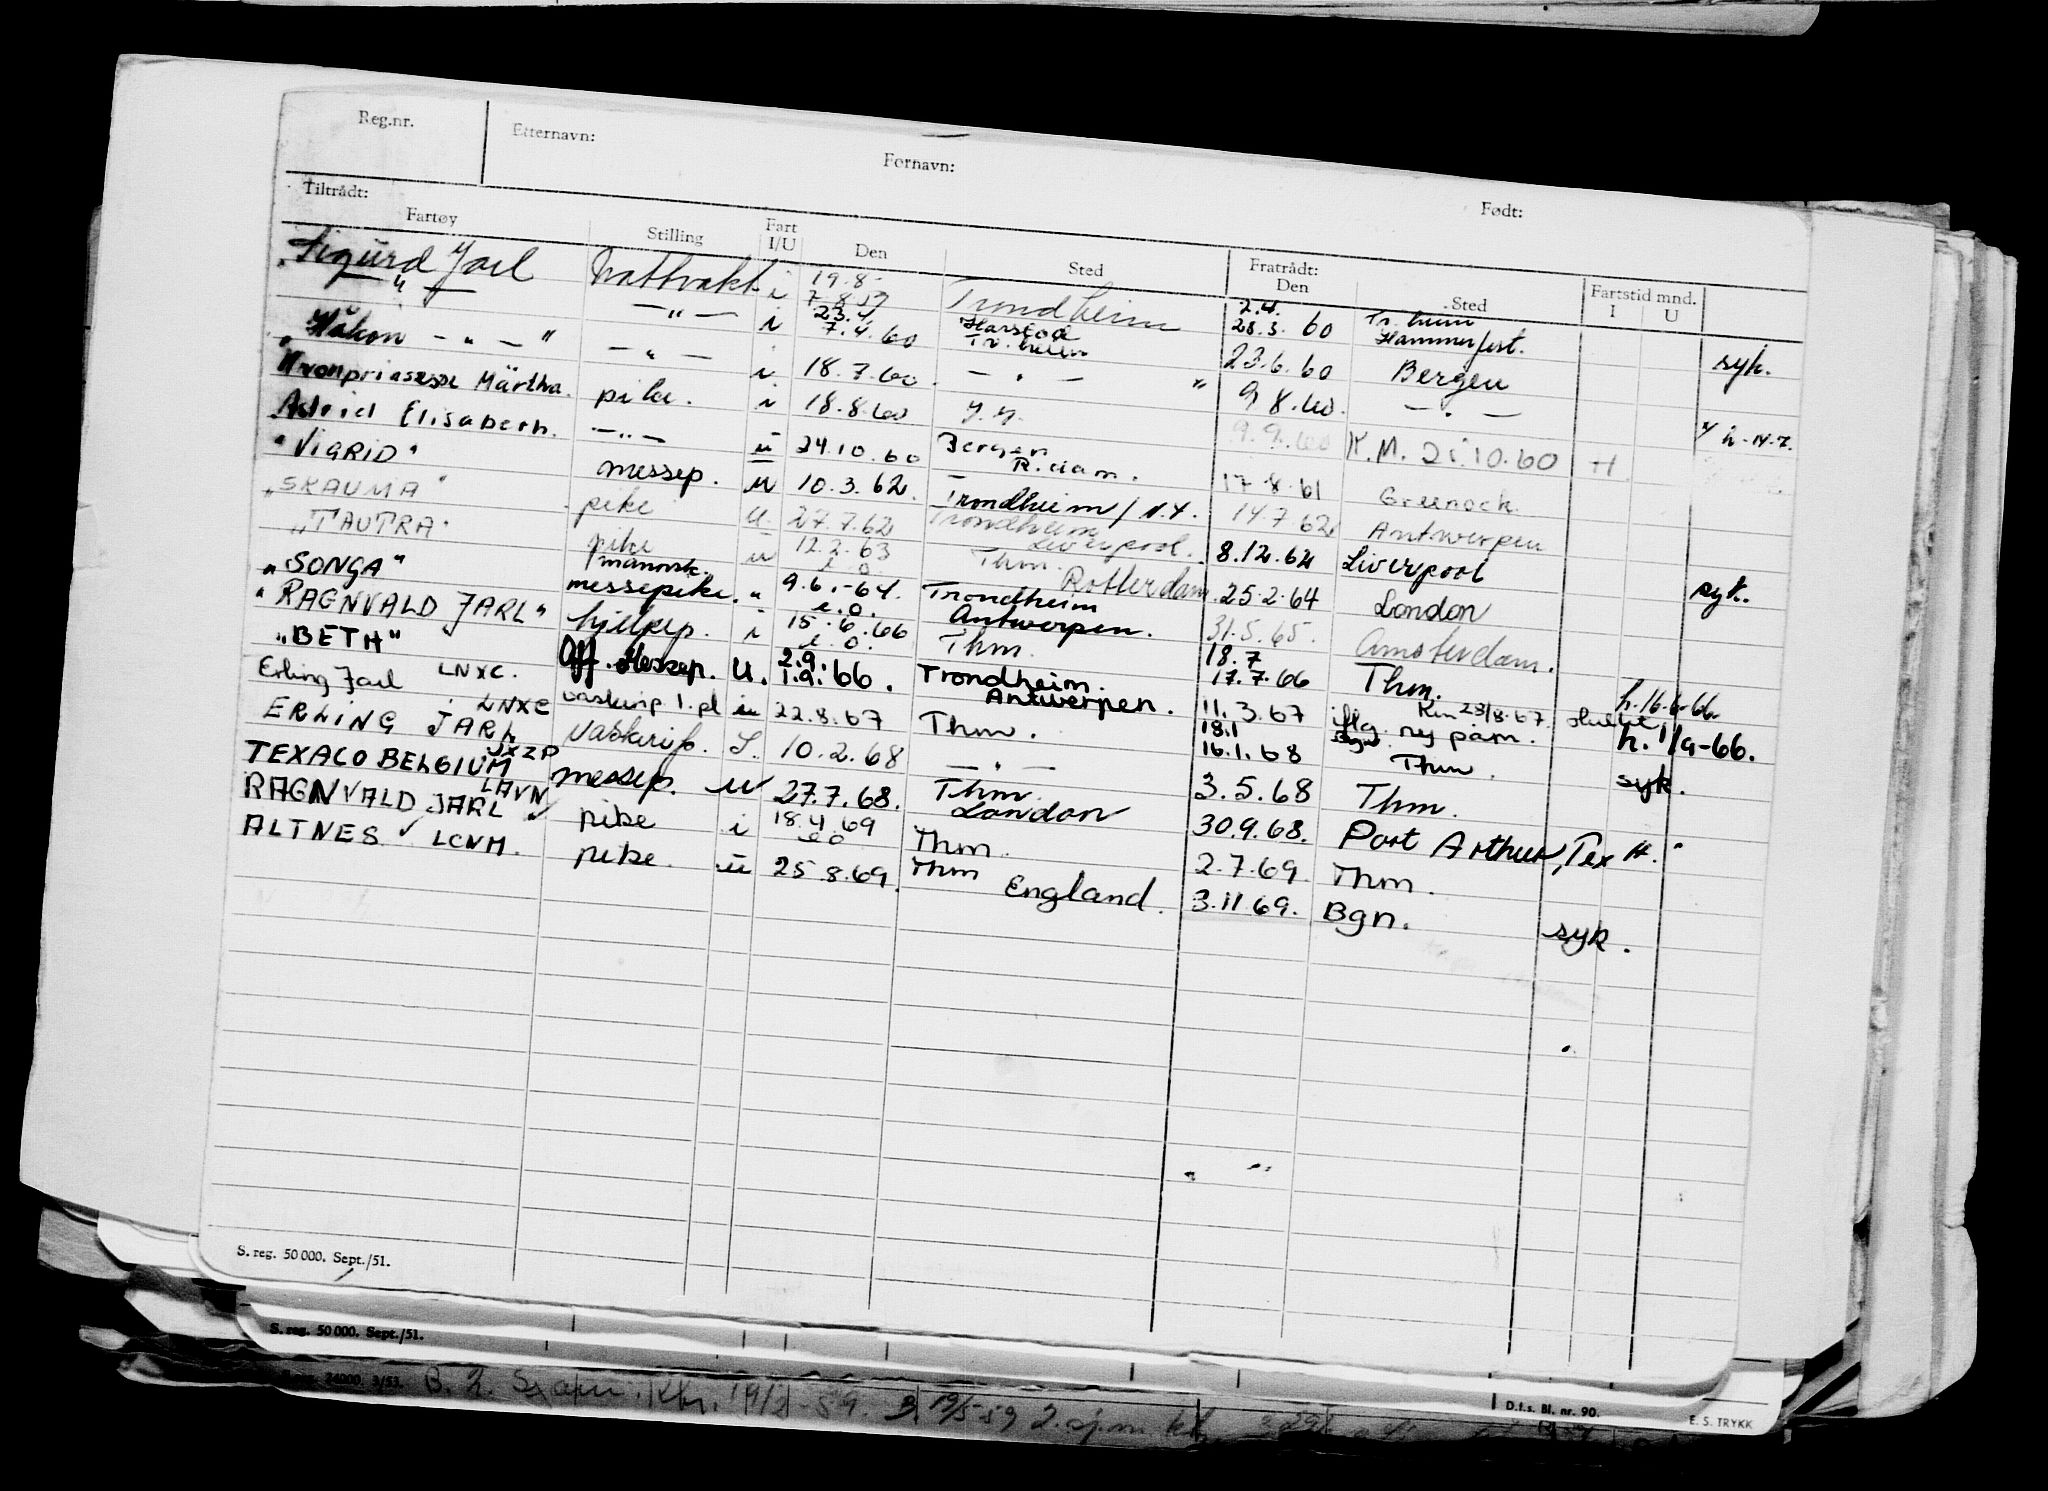 Reg.nr. Etternavn: Fornavn: Født:
Tiltrådt: Fratrådt:
Fartøy Stilling Fart I/U Den Sted Den Sted Fartstid mnd. I U
Sigurd Jarl Nattvakt i 19.8- 7.8.59 Trondheim 2.4. 28.3.60 Tr.heim Hammerfest. syk.
— " — — " — i 23.4. 7.4.60 Harstad Tr.heim 23.6.60 Bergen
Håkon — " — " — " — i 18.7.60 — " — " 9.8.60. — " — h. 14.7.
Kronprinsesse Märtha. pike. i 18.8.60 9.9.60 K.M. 21.10.60 H
Astrid Elisabeth. — " — u 24.10.60 Bergen R.dam. 17.8.61 Greenock
"VIGRID" messep. u 10.3.62. Trondheim / N.Y. 14.7.62 Antwerpen
"SKAUMA" pike u. 27.7.62 Trondheim Liverpool. 8.12.62 Liverpool syk.
"TAUTRA" pike u 12.2.63 Thm. Rotterdam. 25.2.64 London
"SONGA" messepike. " 9.6.-64. Trondheim Antwerpen. 31.5.65. Amsterdam.
"RAGNVALD JARL" hjelpep. i 15.6.66 Thm. 18.7 17.7.66 Thm. h. 16.6.66.
"BETH" Off. Messep. U. 2.9. 1.9.66. Trondheim. Antwerpen. 11.3.67 flg. nej pam. h. 1/9-66.
Erling Jarl LNXC. 22.8.67 Thm. 18.1 16.1.68 Thm. syk.
ERLING JARL LNXC vaskerip. I. 10.2.68 — " — 3.5.68 Thm.
TEXACO BELGIUM JXZP messep. u 27.7.68. Thm. London 30.9.68. Port Arthur, Tex H.
RAGNVALD JARL LAVN pike i 18.4.69 Thm. 2.7.69 Thm.
ALTNES LCVM. pike. u 25.8.69. Thm England. 3.11.69. Bgn. syk.
S. reg. 50 000. Sept./51.
S. reg. 50 000. Sept./51.
24000 3/53. 19/2-59. 19/5-59
D.f.s. Bl. nr. 90. E. S. TRYKK